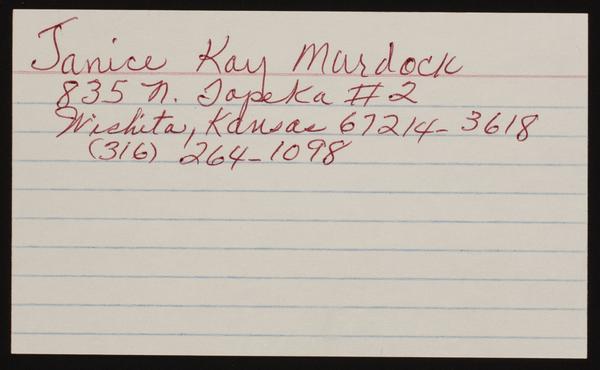 Janice Kay Murdock
835 N. Topeka #2
Wichita, Kansas 67214-3618
(316) 264-1098